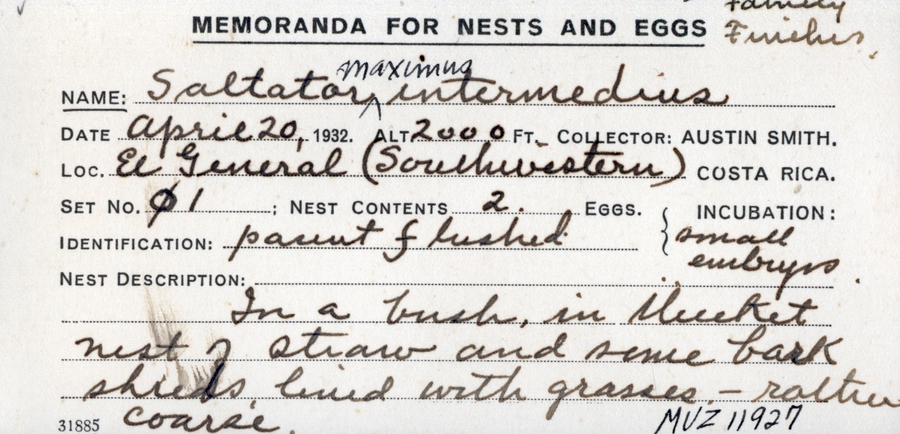 Family
MEMORANDA FOR NESTS AND EGGS Finches.
maximus
NAME: Saltator ^ intermedius
DATE April 20, 1932. ALT 2000 FT. COLLECTOR: AUSTIN SMITH.
LOC. El General (Southwestern) COSTA RICA.
SET NO. 01 ; NEST CONTENTS 2. EGGS. { INCUBATION:
IDENTIFICATION: parent flushed small
embryos
NEST DESCRIPTION:
In a bush, in thicket
nest of straw and some bark
shreds, lined with grasses, – rather
31885 coarse. MVZ 11927